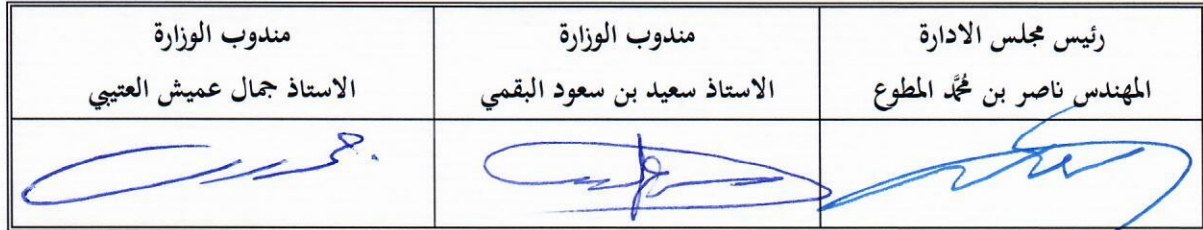 رئيس مجلس الادارة
المهندس ناصر بن محمَّد المطوع
مندوب الوزارة
الاستاذ سعيد بن سعود البقمي
مندوب الوزارة
الاستاذ جمال عميش العتيبي